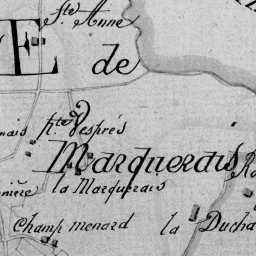 Ste Anne
E de
nais pte Desprès
Marquerais
la Marquerais
nière
Champ menard la Ducha